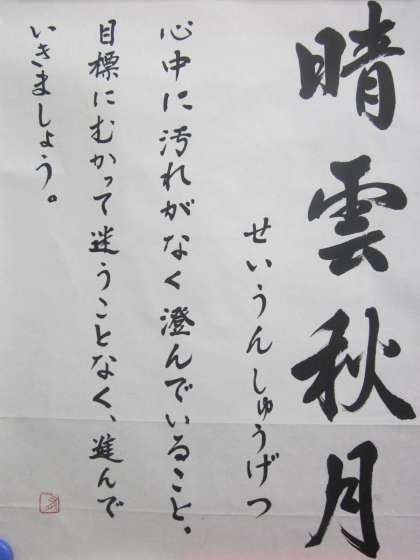 晴雲秋月
せいうんしゅうげつ
心中に汚れがなく澄んでいること。
目標にむかって迷うことなく、進んで
いきましょう。